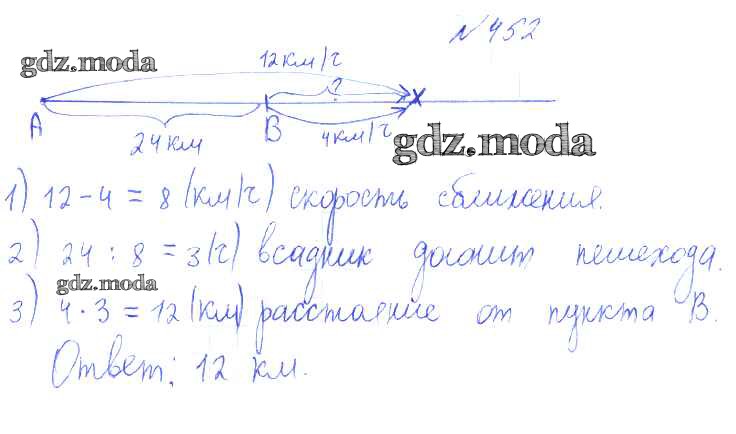 № 452
12 км/ч
gdz.moda
?
А
24 км
В
4 км/ч
gdz.moda
1) 12 - 4 = 8 (км/ч) скорость сближения.
2) 24 : 8 = 3 (ч) всадник догонит пешехода.
gdz.moda
3) 4 · 3 = 12 (км) расстояние от пункта В.
Ответ: 12 км.